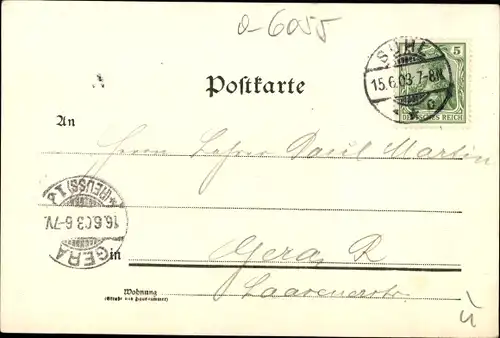 o-6055
SUHL
15.6.03.7-8N.
5
DEUTSCHES REICH
Postkarte
An
Herrn Lehrer Paul Martin
GERA
16.6.03.6-7V.
(REUSS) 1.
in Gera R
Wohnung
(Straße und Hausnummer)